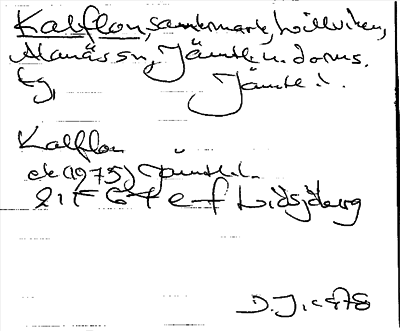 Kalflon, samermark, Hillviken,
Alanäs sn, Jämtl:s n. doms.
tg, Jämtl.
Kalflon
ek (1975) Jämtl.
21 F 6 f e f Lidsjöberg
D. J. 1978